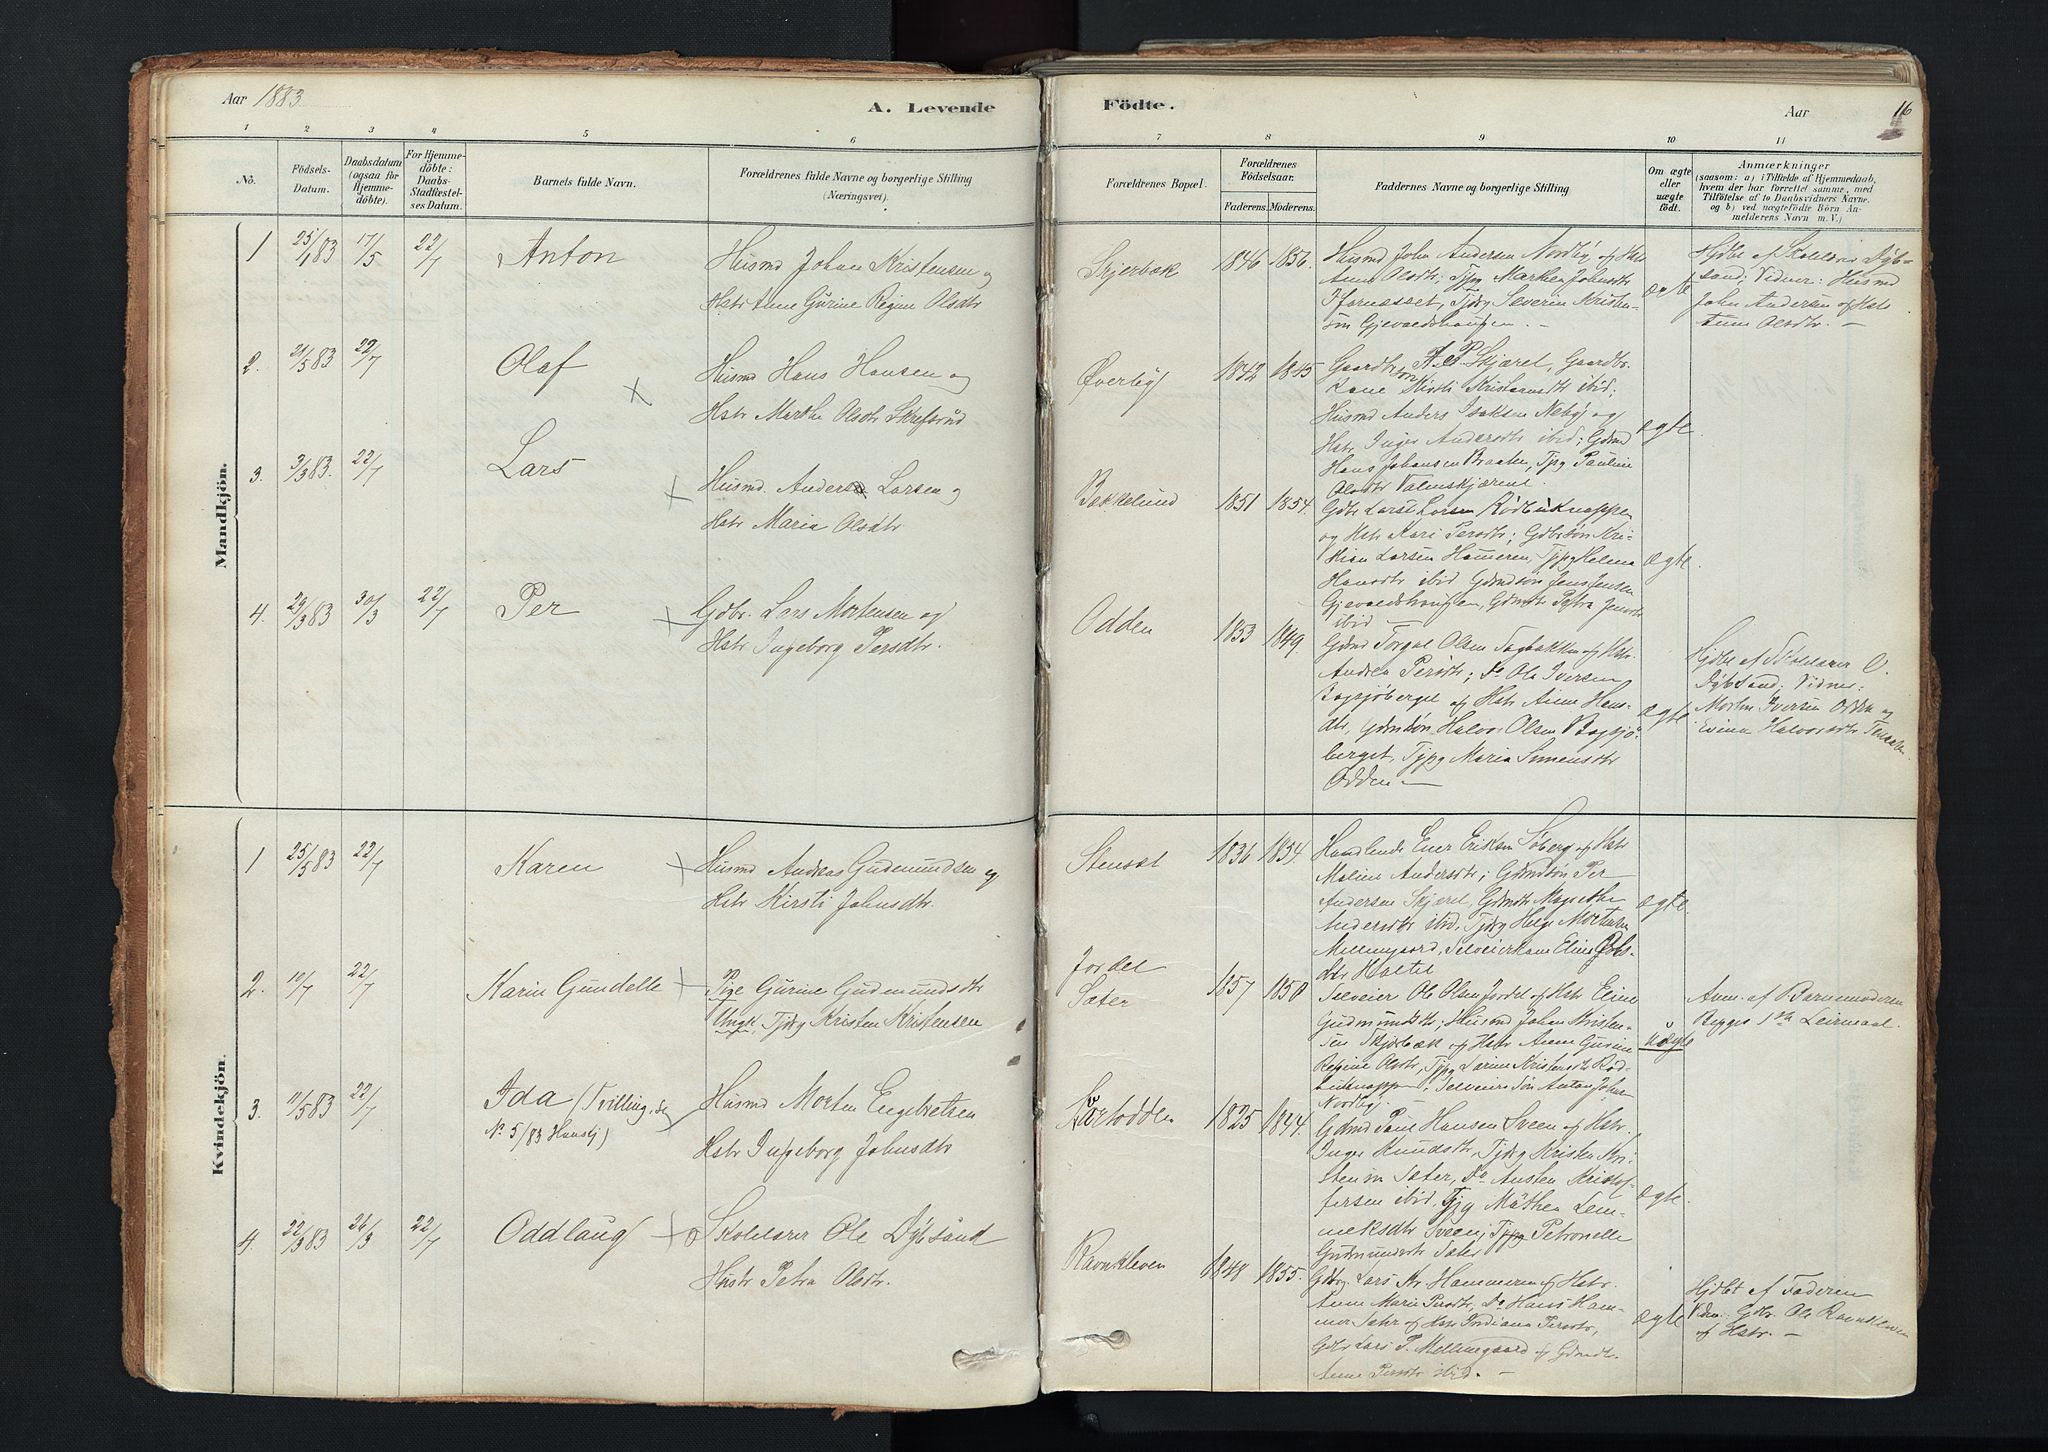 Aar 1883
A. Levende
Födte.
Aar
16
1 2 3 4 5 6 7 8 9 10 11
No.
Födsels-
Datum.
Daabsdatum
(ogsaa för
Hjemme-
döbte).
For Hjemme-
döbte:
Daabs-
Stadfæstel-
ses Datum.
Barnets fulde Navn.
Forældrenes fulde Navne og borgerlige Stilling
(Næringsvei).
Forældrenes Bopæl.
Forældrenes
Födselsaar.
Faderens. Moderens.
Faddernes Navne og borgerlige Stilling
Om ægte
eller
uægte
födt.
Anmærkninger
(saasom: a) i Tilfælde af Hjemmedaab,
hvem der har forrettet samme, med
Tilföielse af to Daabsvidners Navne,
og b) ved uægtefödte Börn An-
melderens Navn m. V.)
Mandkjön.
1 25/1 83 17/5 22/7 Anton
Husmd Johan Kristensen og
Hstr Anne Gurine Regine Olsdtr
Skjerbæk 1846 1856.
Husmd John Andersen Nordby og Hstr
Anne Olsdtr; Tjpg Marthea Johnsdtr
Tjdrg Severin Kristen-
sön Gjevoldshaugen. —
ægte
Hjdbt af Skolelærer Dyb-
sand; Vidner: Husmd
John Andersen og Hstr
Anne Olsdtr. —
2. 21/5 83 22/7 Olaf
Husmd Hans Hansen og
Hstr Marthe Olsdtr
Øverby 1842 1845
Gaardbr. A. P. Skjæret, Gaardbr.
Kone Kirsti ibid;
Husmd Anders Isaksen Neby og
Hstr Inger Andersdtr ibid; Gdmd
Hans Johansen Braaten, Tjpg Pauline
Olsdtr
ægte.
3. 3/3 83. 22/7 Lars
Husmd. Anders Larsen og
Hstr Maria Olsdtr
Bækkelund 1851 1854.
Gdbr Lars Larsen Rödbuknappen
og Hstr Kari Persdtr; Gdbrsön Kri-
stian Larsen Hameren, Tjpg Helena
Hansdtr ibid Gdmdsön Jens Jensen
Gjevoldshaugen, Gdmdtr Petra Jensdtr
ibid —
ægte.
4. 29/3 83 30/3 22/7 Per
Gdbr. Lars Mortensen og
Hstr Ingeborg Persdtr.
Odden 1853 1849.
Gdmd Torgal Olsen og Hstr.
Andrea Persdtr; Do Ole Iversen
Bagsjöberget og Hstr Anne Hans-
dtr, Gdmdsön Halvor Olsen Bagsjö-
berget, Tjpg Maria Simensdtr
Odden —
ægte.
Hjdbt af Skolelærer O.
Dybsand; Vidner:
Morten Iversen Odden og
Halvorsdtr
Kvindekjön.
1 25/5 83 22/7 Karen
Husmd Andreas Gudmundsen og
Hstr Kirsti Johnsdtr.
Stenset 1836 1854.
Handlende Ener Eriksen Söberg og Hstr
Maline Andersdtr; Gdmdsön Per
Andersen Skjæret, Gdmdtr Magnethe
Andersdtr ibid, Tjdrg Helge Mortensen
Mellemgaard, Selveierkone Eline Ols-
dtr Holtet
ægte.
2. 10/7 22/7 Karin Gundelle
Pige Gurine Gudmundsdtr
Ungk. Tjdrg Kristen Kristensen
Jordet
Sæter 1857 1858
Selveier Ole Olsen Jordet og Hstr Eline
Gudmundsdtr; Husmd Johan Kristen-
sen Skjerbæk og Hstr Anne Gurine
Regine Olsdtr, Tjpg Karine Kristensdtr Röd-
buknappen, Selveiers Sön Anton John-
Nordby.
uægte
Anm. af Barnemoderen
Begges 1ste Leiermaal.
3. 11/5 83 22/7 Ida (Tvilling, se
No 5/83 Hansj)
Husmd Morten Engebretsen
Hstr Ingeborg Johnsdtr
1825 1844.
Gdmd Paul Hansen Sveen og Hstr.
Inger Knudsdtr, Tjdrg Kristen Kri-
stensen Sæter, Do Austen Kristof-
fersen ibid, Tjpg Mathea Lem-
meksdtr Sveen; Tjpg Petronelle
Gudmundsdtr Sæter
ægte.
4. 22/3 83 26/3 22/7 Oddlaug
Skolelærer Ole Dybsand
Hustr Petra Olsdtr.
Ravnkleven 1848 1855.
Gdbrg Lars Kr. Hammeren og Hstr.
Anne Marie Persdtr, Do Hans Ham-
mer Sæter og Hstr Indiana Persdtr,
Gdbr Lars P. Mellemgaard og Gdmdtr.
Anne Persdtr ibid. —
ægte
Hjdbt af Faderen
Vidn: Gdbr. Ole Ravnkleven
og Hstr. —